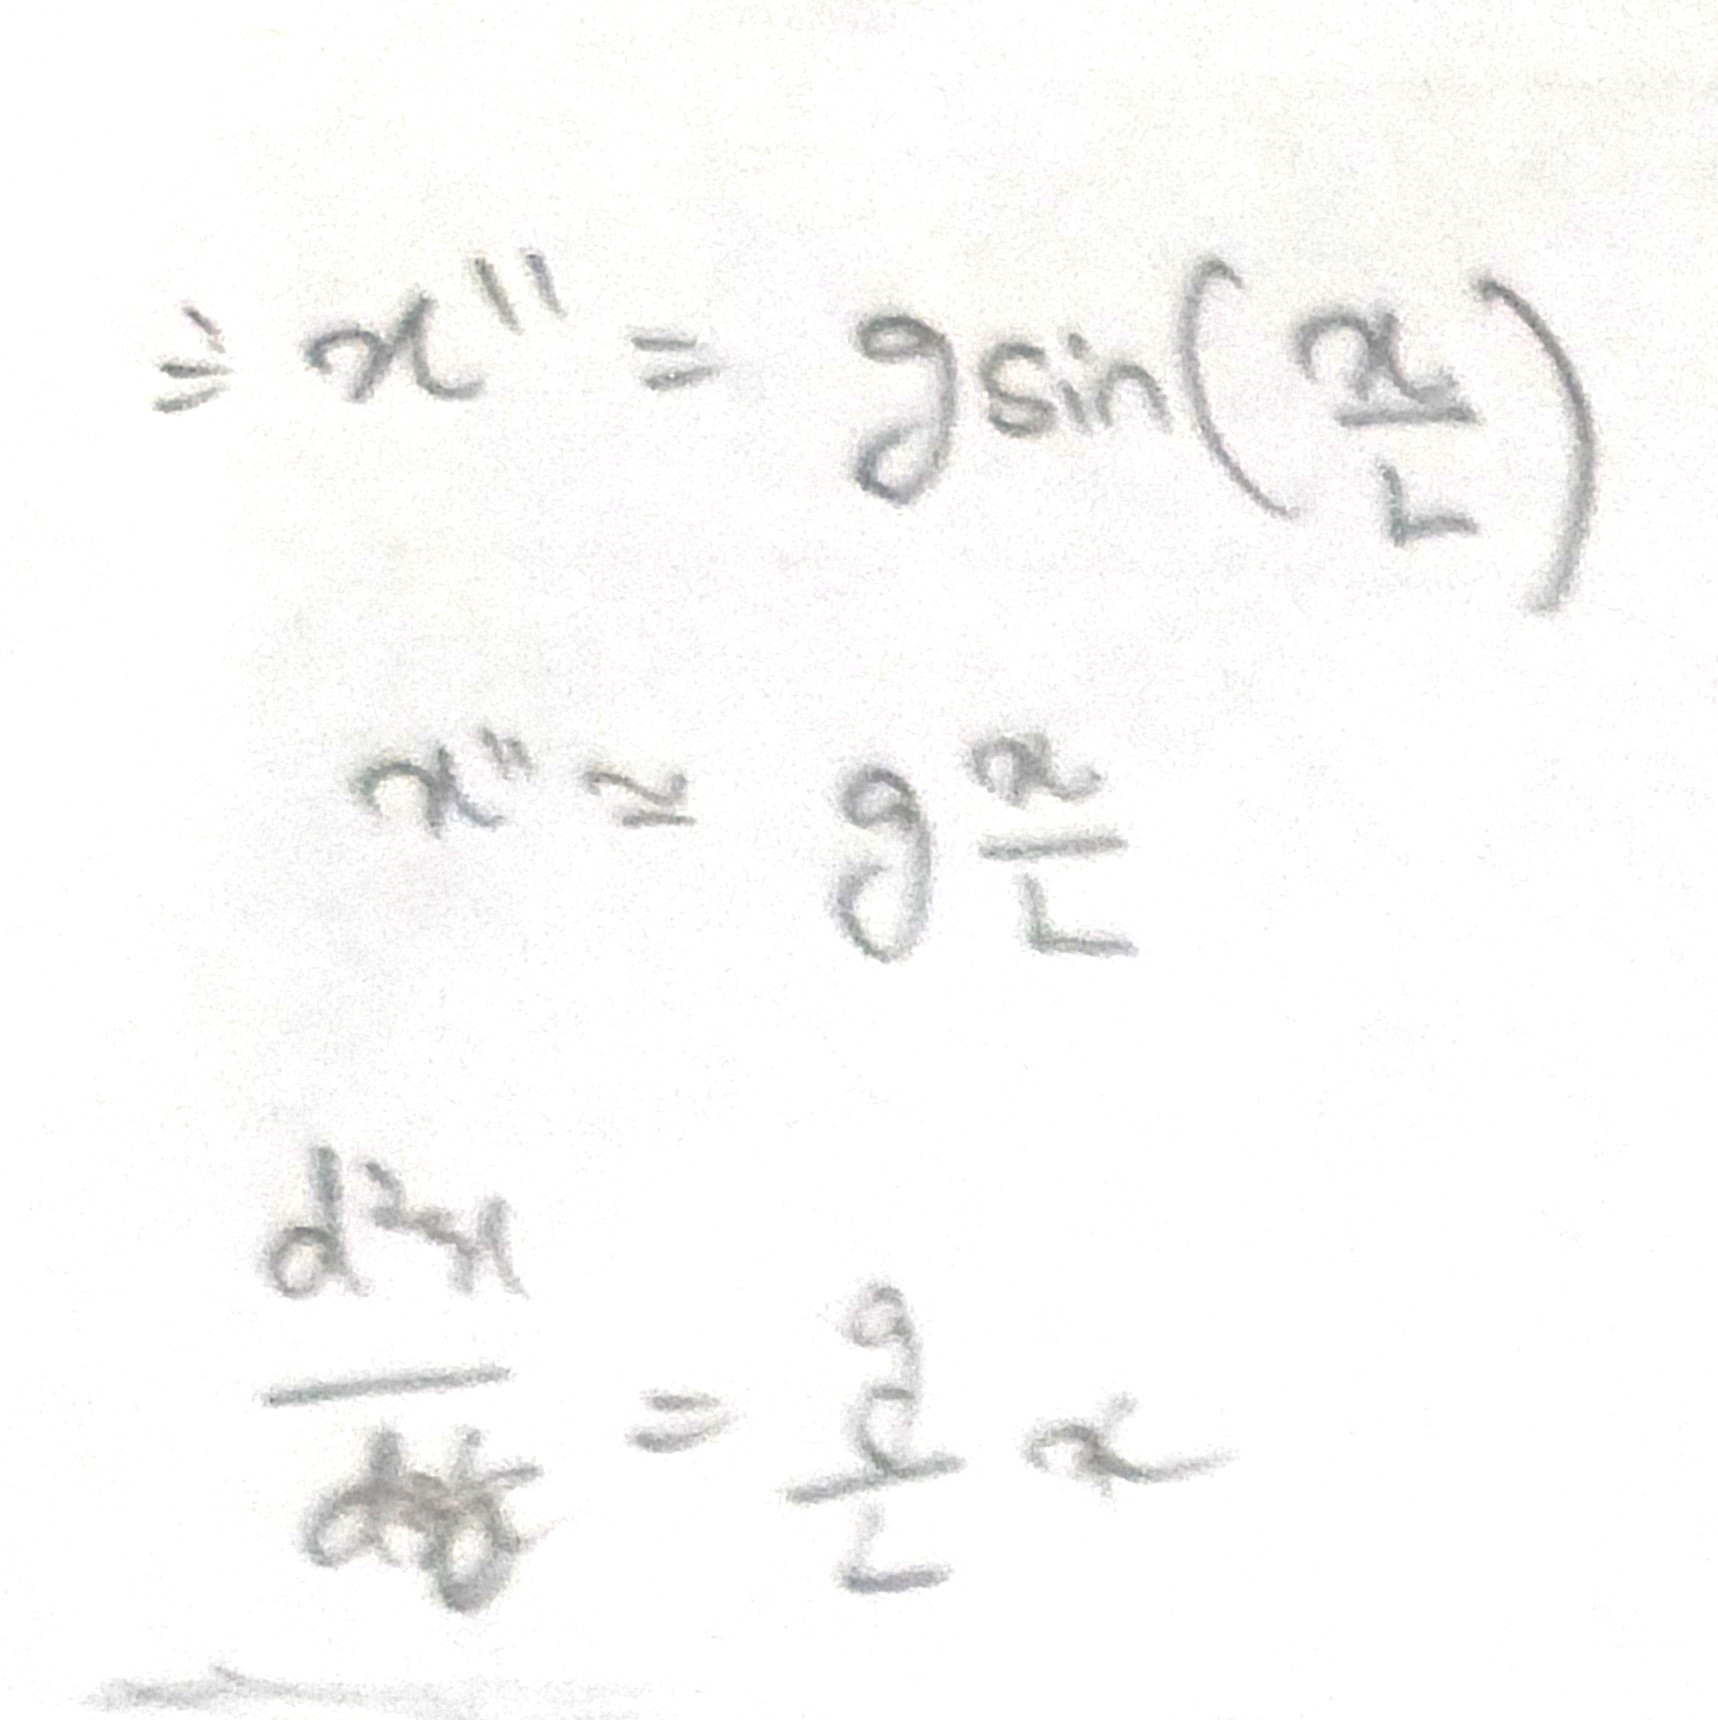 ⇒ x'' = g sin(x/L)
x'' ≃ g x/L
d²x/ = g/L x